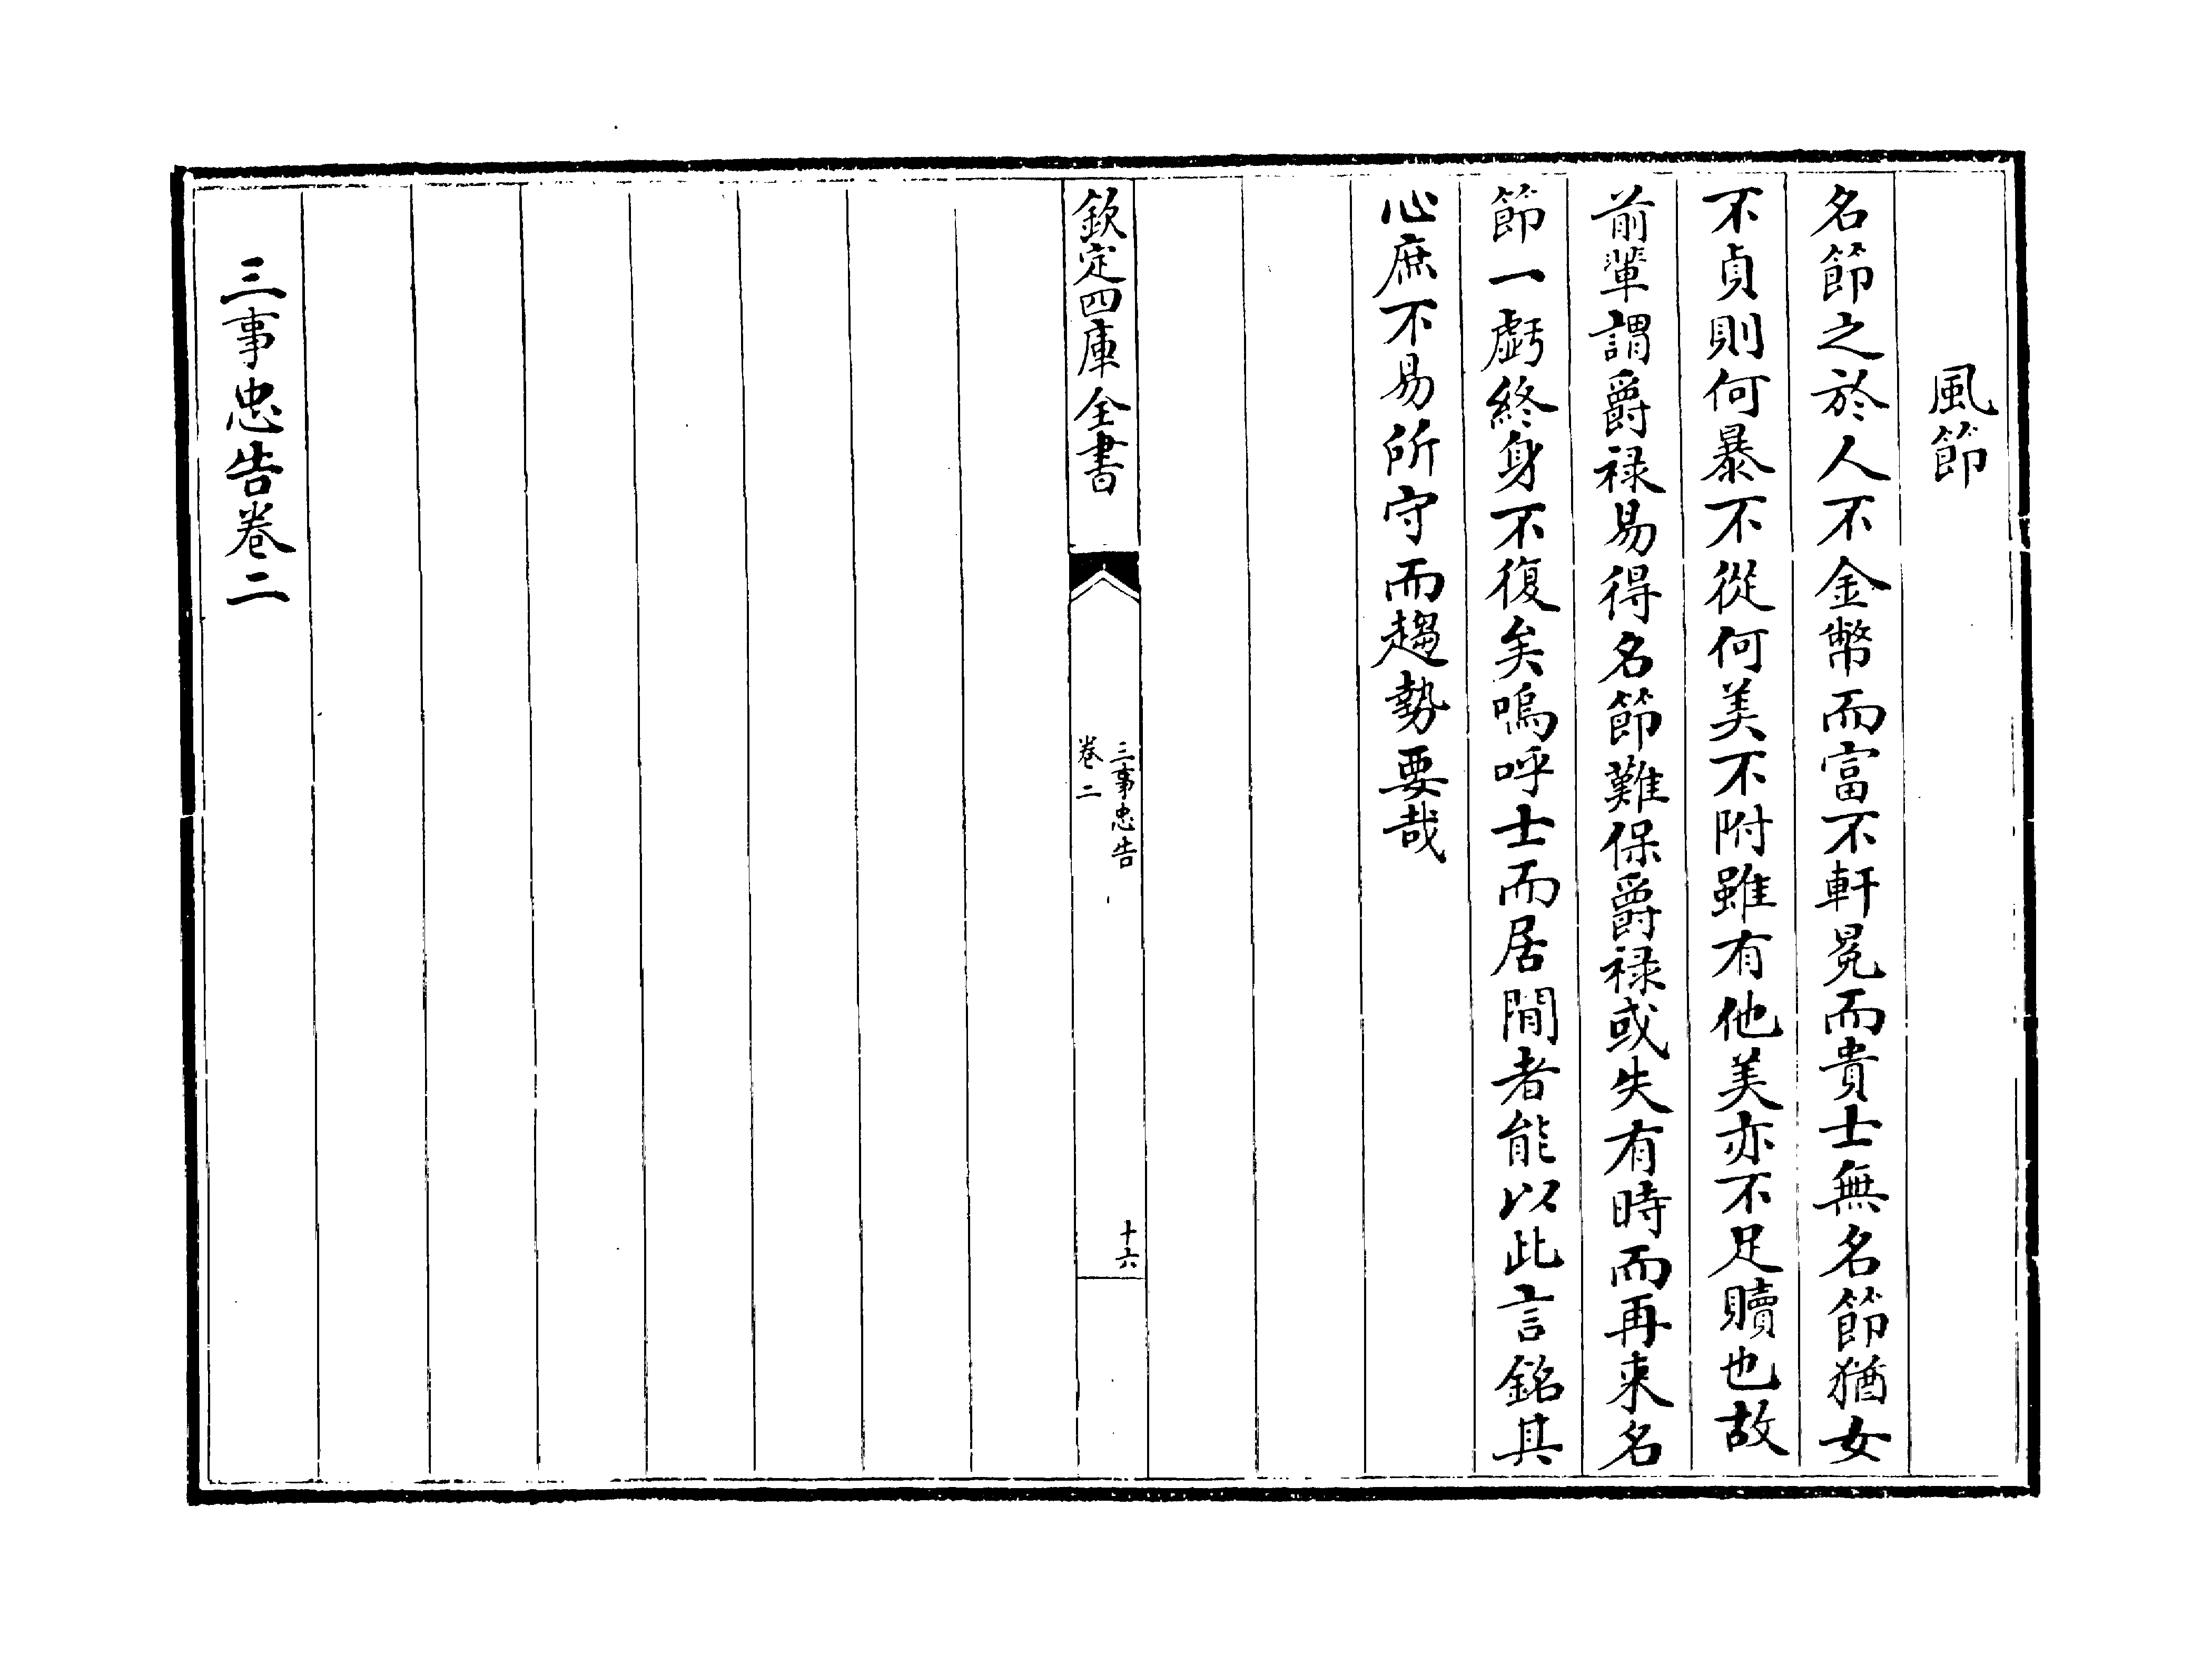 風節
名節之於人不金幣而富不軒冕而貴士無名節猶女
不貞則何暴不從何美不附雖有他美亦不足贖也故
前輩謂爵禄易得名節難保爵禄或失有時而再来名
節一虧終身不復矣嗚呼士而居閒者能以此言銘其
心庶不易所守而趨勢要哉
欽定四庫全書
三事忠告
卷二
十六
三事忠告卷二